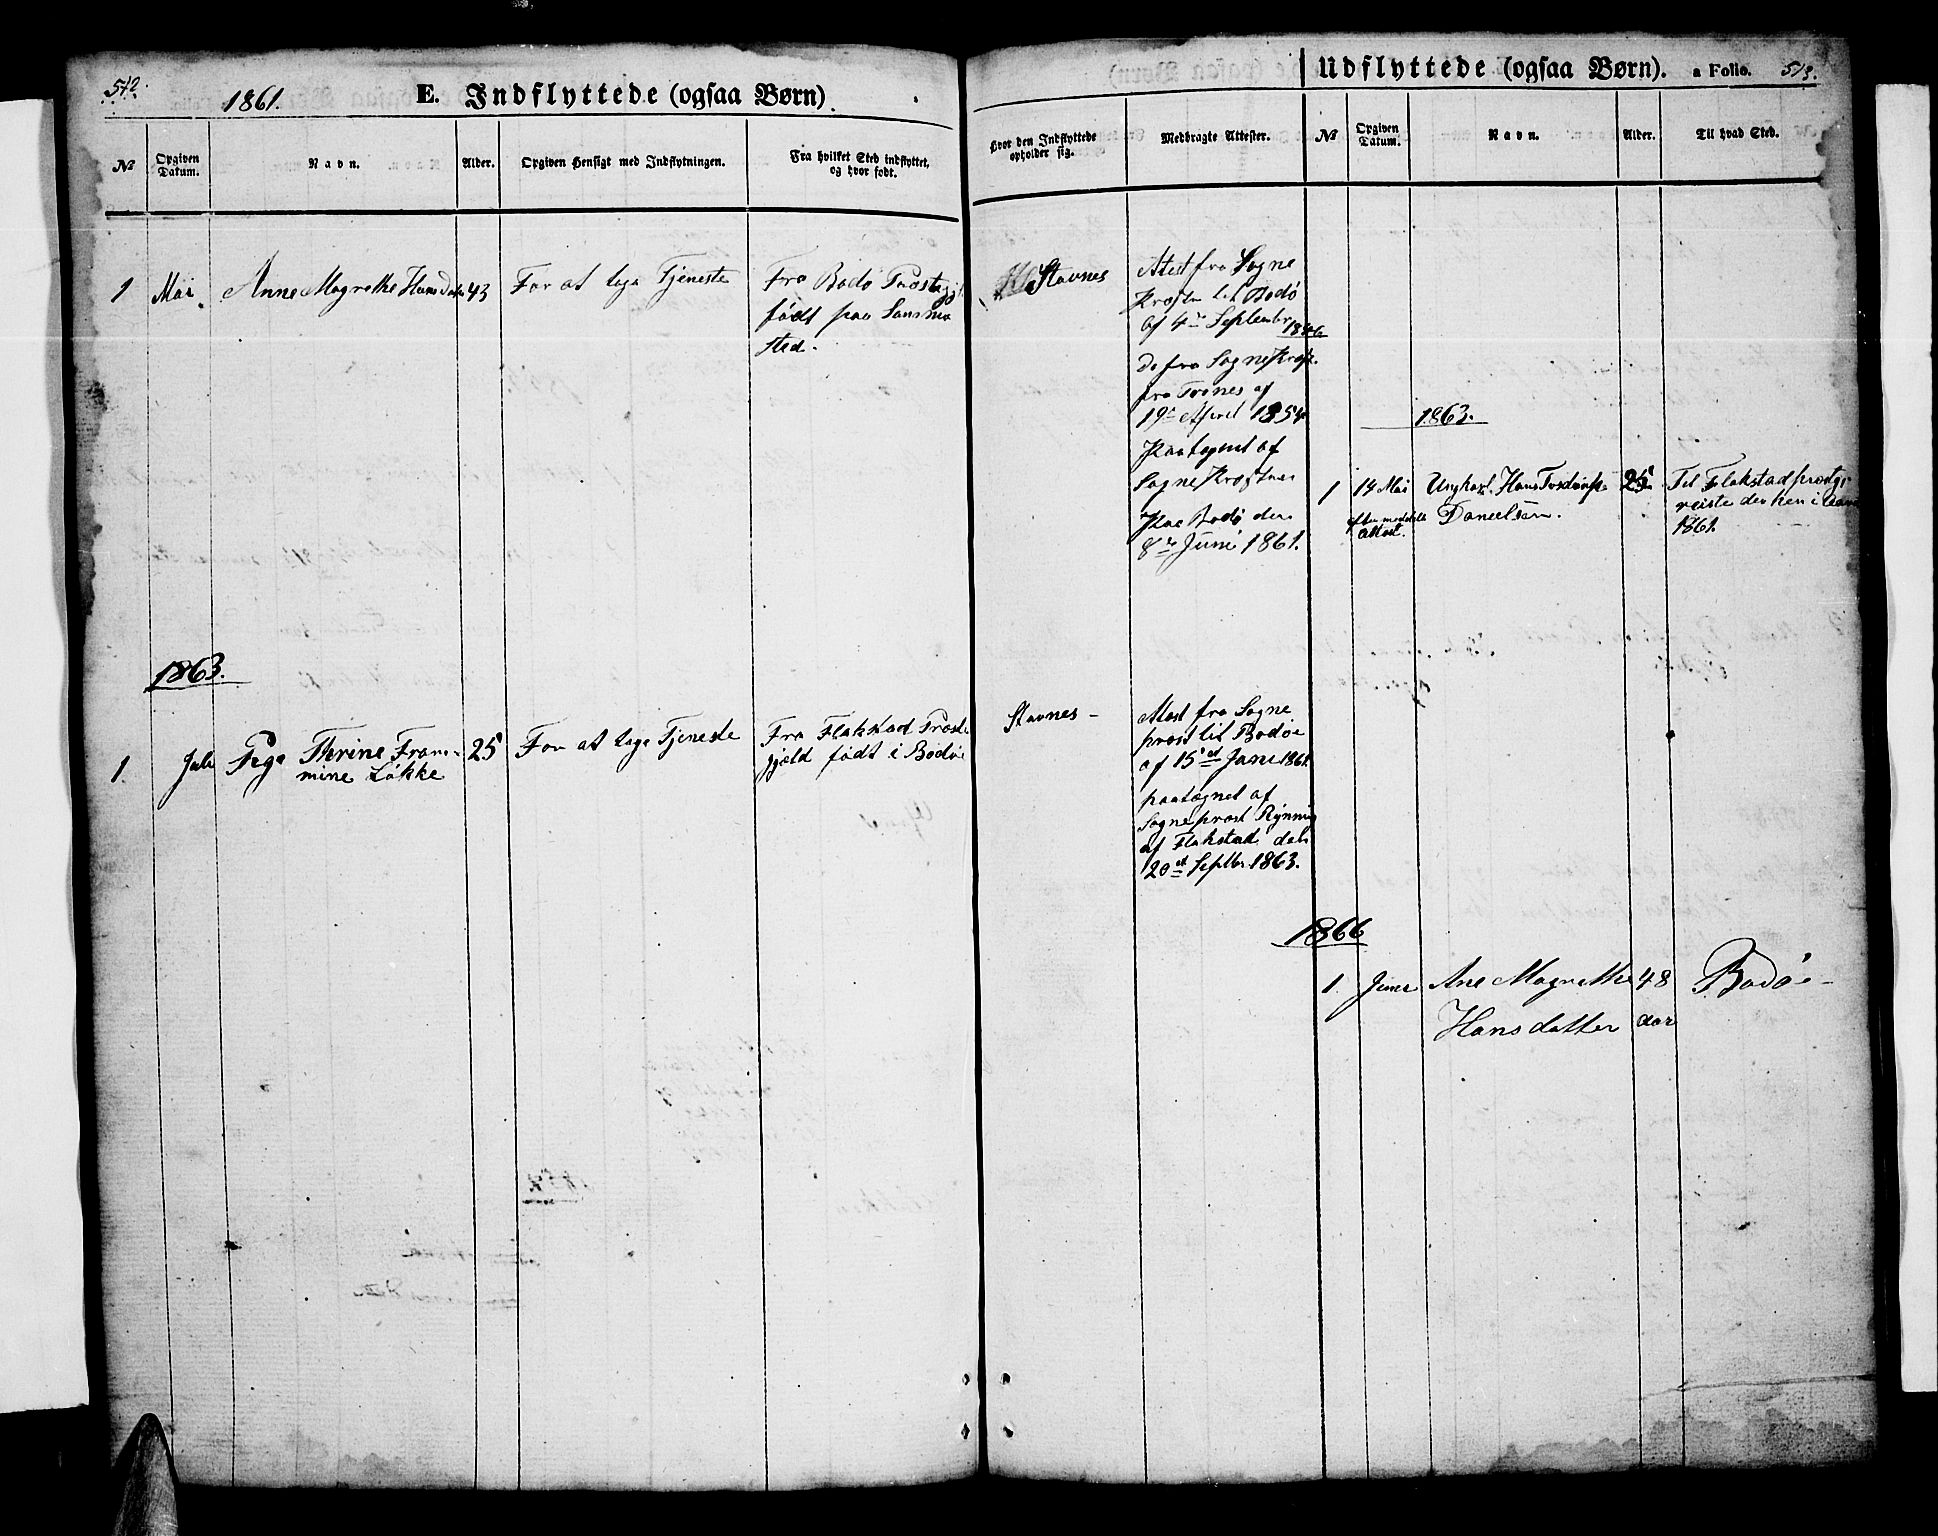 512.
1861.
E. Indflyttede (ogsaa Børn).
№
Opgiven Datum.
Navn.
Alder.
Opgiven Hensigt med Indflytningen.
Fra hvilket Sted indflyttet, og hvor født.
Hvor den Indflyttede opholder sig.
Medbragte Attester.
1
Mai
Anne Magrethe Hansdatr
43
For at tage Tjeneste
Fra Bodø Præstegj
født paa Samme
Sted.
Stavnes
Atest fra Sogne
Præsten til Bodø
af 4de September 1846
do fra Sogne Præst.
fra Trones af
19de April 1854
Paategnet af
Sogne Præsten
Paa Bodø den
8de Juni 1861.
1863.
1.
Juli
Pige Therine From-
mine Løkke
25
For at tage Tjeneste
Fra Flakstad Præste
gjæld født i Bodøe
Stavnes -
Atest fra Sogne
præst til Bodøe
af 15de Juni 1861.
paategnet af
Sognepræst Rynning
af Flakstad den
20de Septbr 1863.
Udflyttede (ogsaa Børn).
a Folio.
513.
№
Opgiven Datum.
Navn.
Alder.
Til hvad Sted.
1863.
1
14 Mai
Attest.
Ungkarl. Hans
Danielsen.
25
Til Flakstad præstgj
reiste derhen i
1861.
1866
1.
Ane Magrethe
Hansdatter
48
aar
Bodøe -